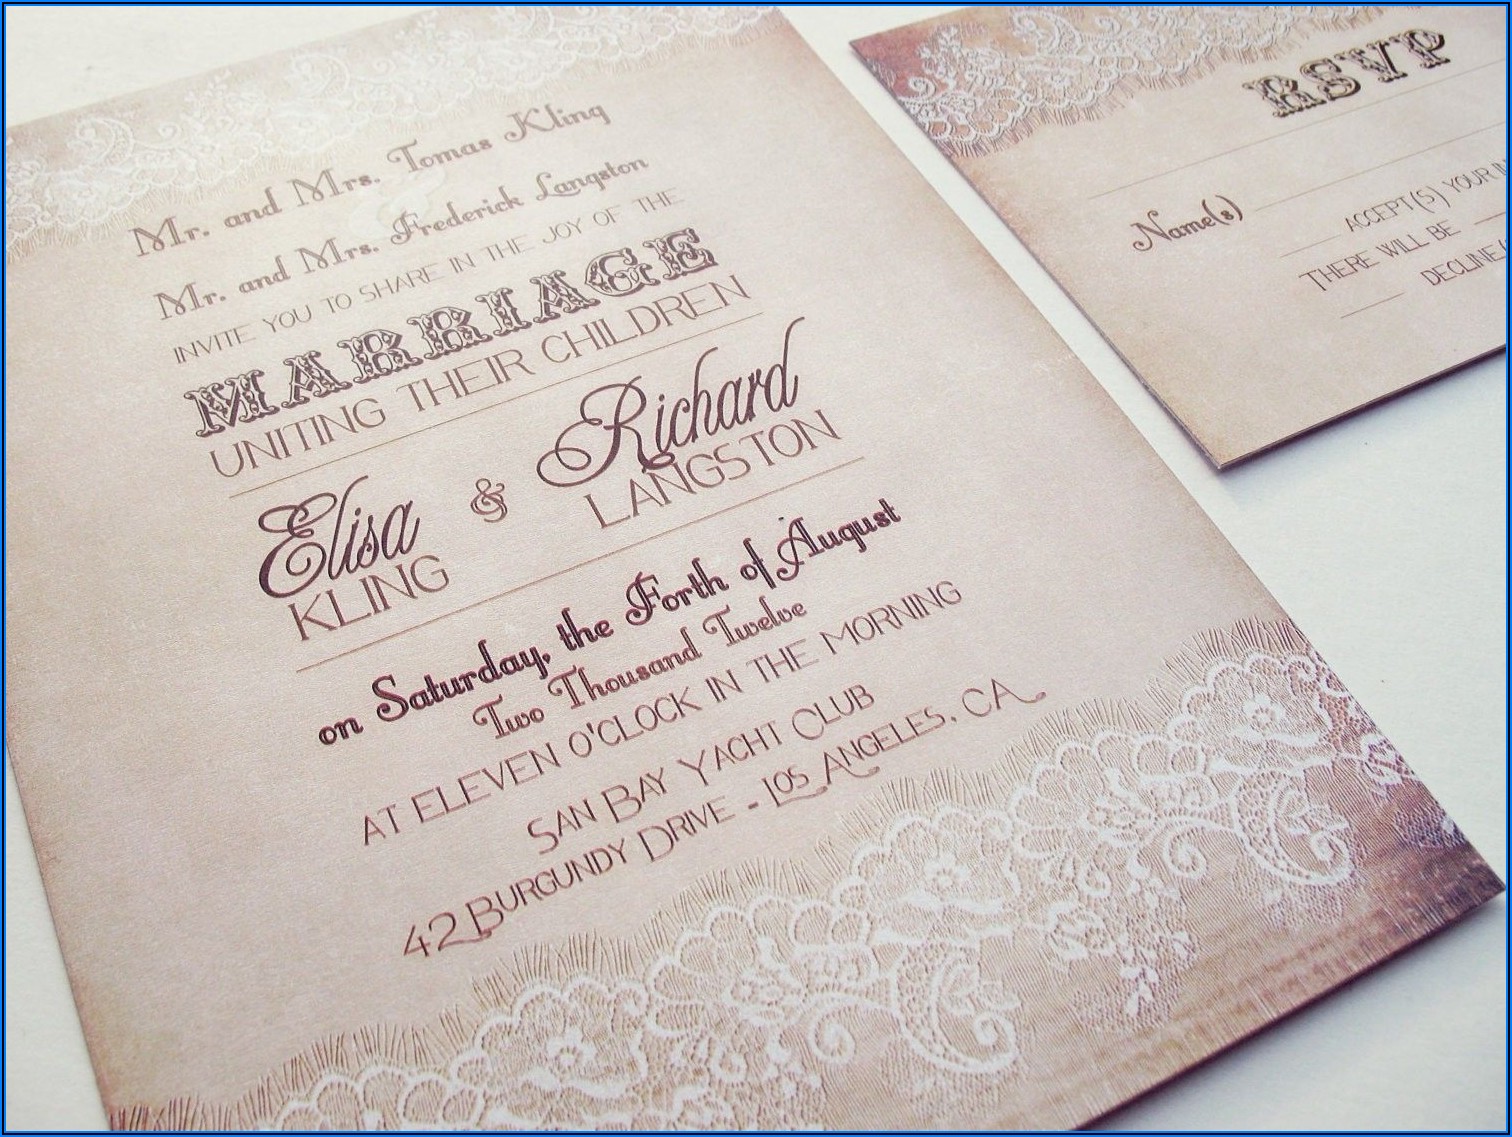 Mr. and Mrs. Tomas Kling
Mr. and Mrs. Frederick Langston
INVITE YOU TO SHARE IN THE JOY OF THE
MARRIAGE
UNITING THEIR CHILDREN
Elisa & Richard
KLING LANGSTON
on Saturday, the Forth of August
Two Thousand Twelve
AT ELEVEN O'CLOCK IN THE MORNING
SAN BAY YACHT CLUB
42 BURGUNDY DRIVE - LOS ANGELES, CA
RSVP
Name(s)
ACCEPT(S) YOUR
THERE WILL BE